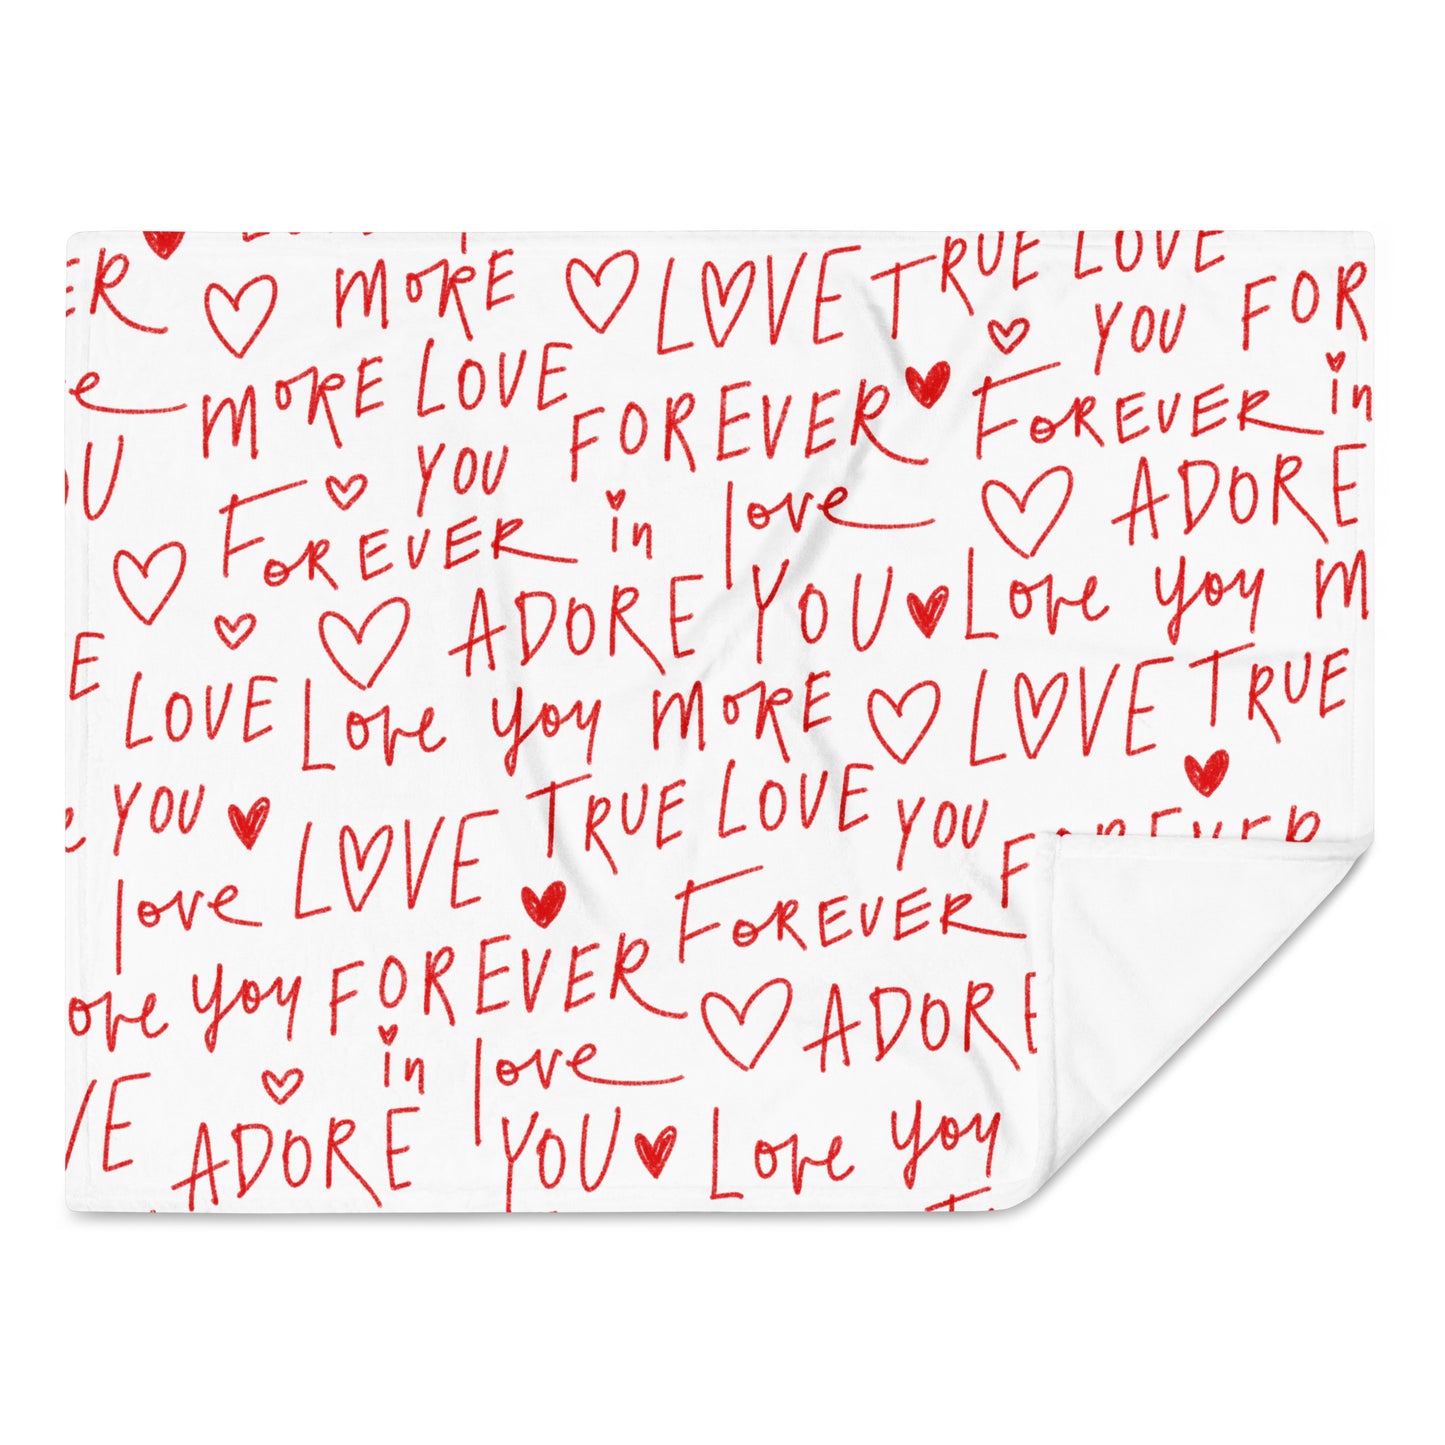 ER MORE LOVE TRUE LOVE
YOU FOR
MORE LOVE FOREVER FOREVER in
OU YOU love ADORE
FOREVER in
ADORE YOU Love you M
E LOVE Love you MORE LOVE TRUE
e YOU LOVE TRUE LOVE YOU FOREVER
love FOREVER
ove you FOREVER ADORE
in love
VE ADORE YOU Love you